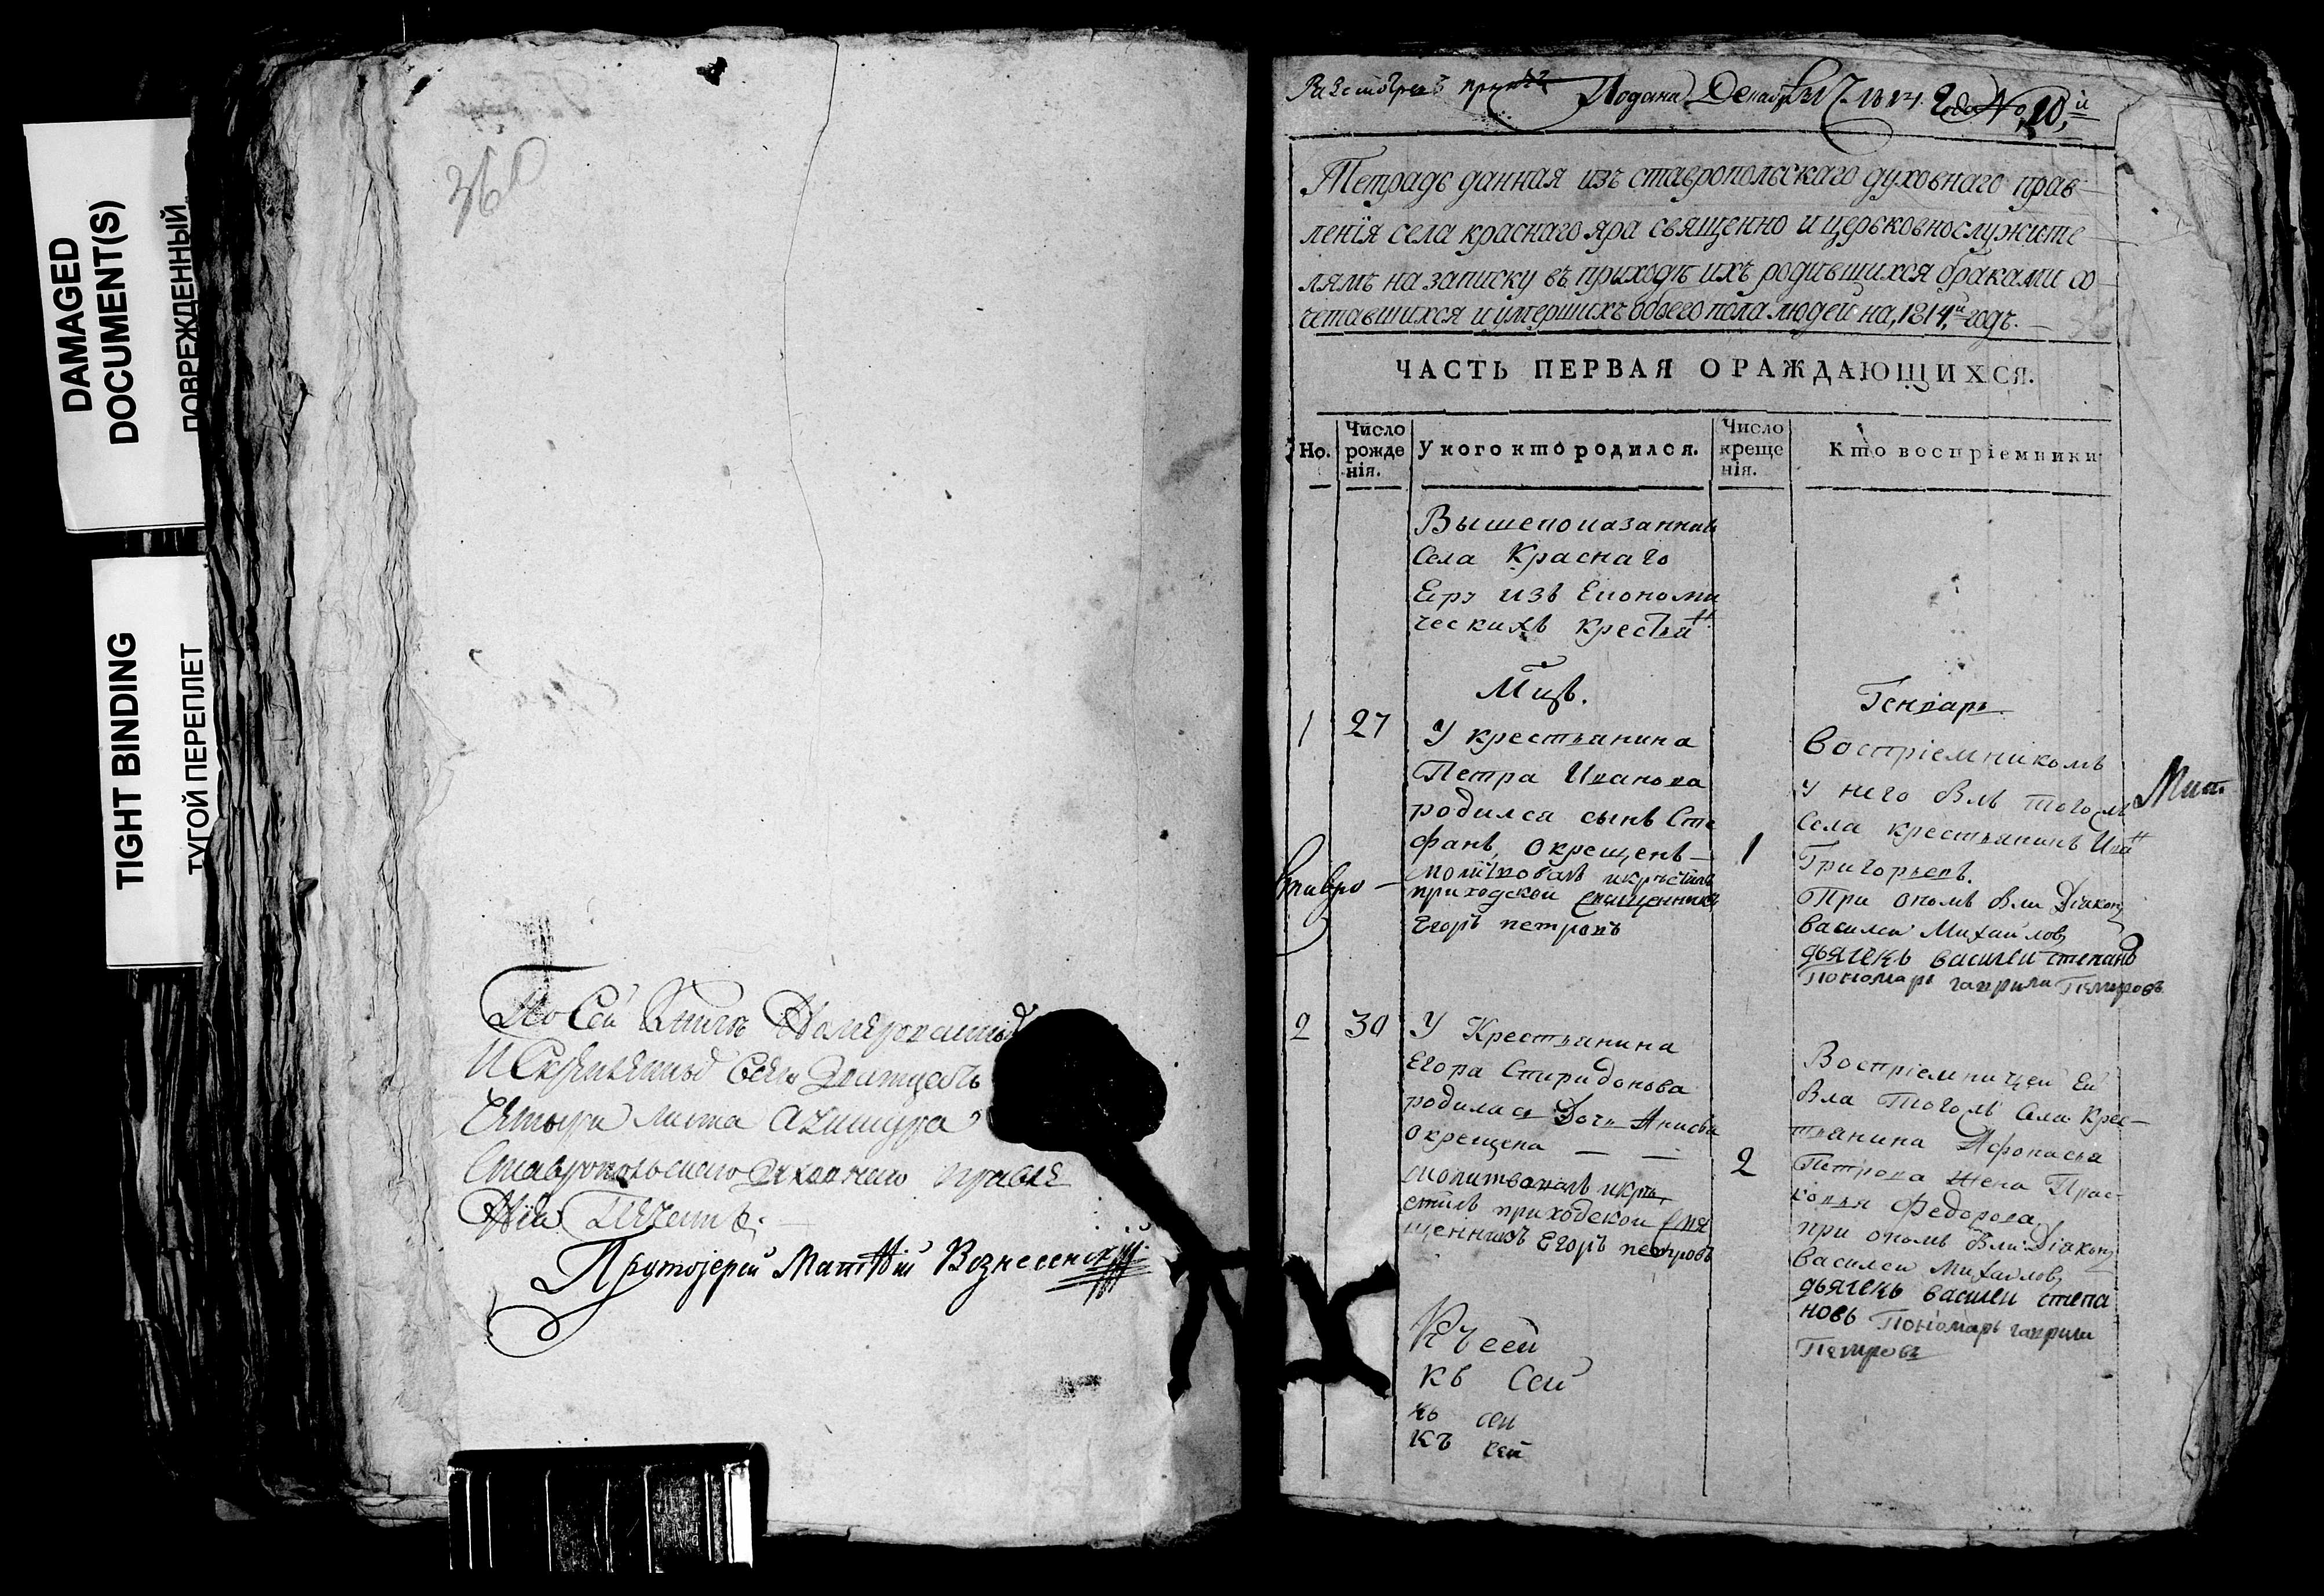 DAMAGED
DOCUMENT(S)
ПОВРЕЖДЕННЫЙ
TIGHT BINDING
ТУГОЙ ПЕРЕПЛЕТ
360
По Сей Книгѣ
И Скрепленныхъ Сею Дватцать
Четыре листа
Ставропольскаго Духовнаго правле
нiя Печать.
Протоiерей Матѳiй Вознесенскiй
Подана Декабря 1814 Года №, 10,й
Тетрадь данная изъ ставропольскаго духовнаго прав
ленїя села краснаго яра священно и церьковнослужите
лямъ на записку въ приходѣ ихъ родившихся браками со
четавшихся и умершихъ обоего пола людей на, 1814,й годъ.
ЧАСТЬ ПЕРВАЯ О РАЖДАЮЩИХСЯ.
Но.
Число
рожде
нія.
У кого кто родился.
Число
креще
нія.
Кто воспріемники
Вышепоказаннаго
Села Краснаго
Яру изъ Економи
ческихъ крестьянъ
Мцъ.
Генварь
1
27
У крестьянина
Петра Иванова
родился сынъ Сте
фанъ, окрещенъ —
молитвовалъ и крестилъ
приходской священникъ
Егоръ петровъ
1
воспріемникомъ
у него былъ того жъ
Села крестьянинъ Иванъ
Григорьевъ.
При ономъ были Дїаконъ
василеи Михаиловъ
дьячекъ василеи степановъ
Пономарь гаврила Петровъ
2
30
У Крестьянина
Егора Спиридонова
родилась Дочь Анисья
окрещена — —
молитвовалъ и кре
стилъ приходской свя
щенникъ Егоръ петровъ
2
Воспріемницей Ей
была тогожъ села Крес—
тьянина Афонасья
Петрова жена Прас-
ковья Федорова
при ономъ были Дїаконъ
василеи Михаиловъ
дьячекъ василеи степа
новъ Пономарь гаврила
Петровъ
Къ сей
къ Сей
къ сеи
Къ сей